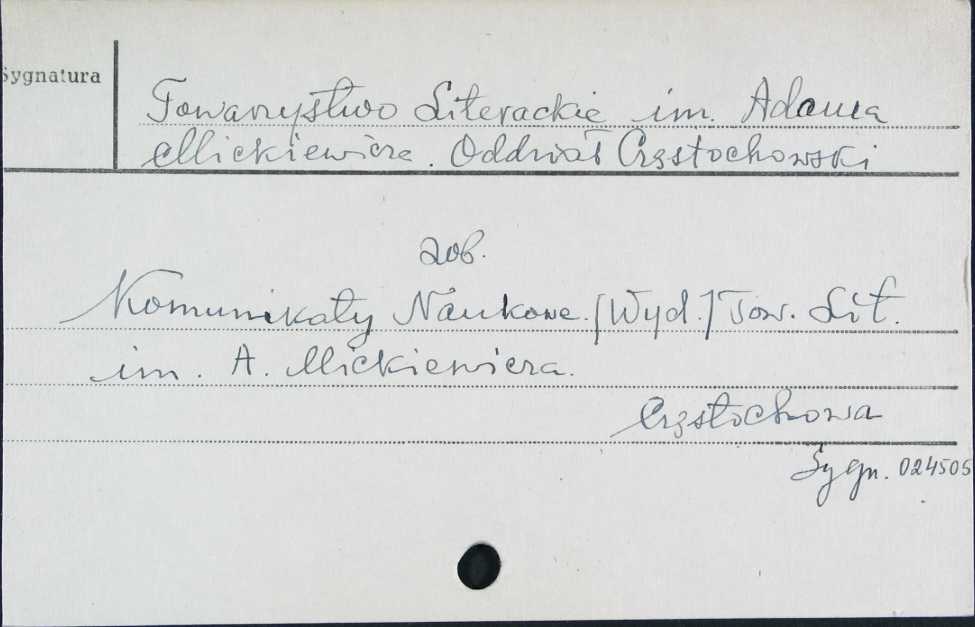 Sygnatura
Towarzystwo Literackie im. Adama
Mickiewicza. Oddział Częstochowski
zob.
Komunikaty Naukowe. [Wyd.] Tow. Lit.
im. A. Mickiewicza.
Częstochowa
Sygn. 024505